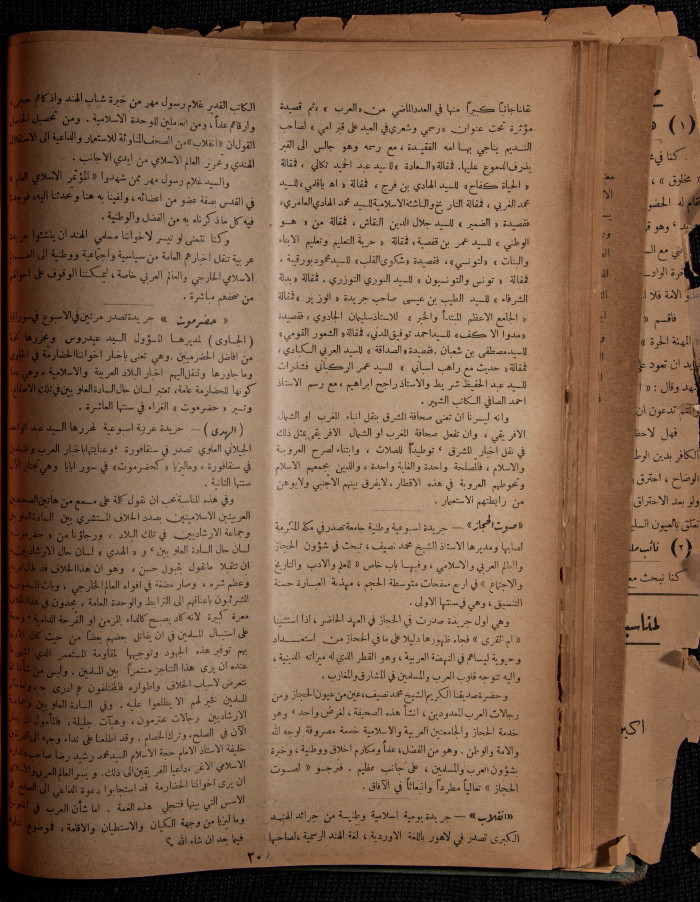 نقاناجاتنا كبيراً منها في العدد الماضي من «العرب» ، ثم قصيدة
مؤثرة تحت عنوان «رسمي وشعري في العيد على قبر امي» لصاحب
النديم يناجي بها امه الفقيدة ، مع رسمه وهو جالس الى القبر
يذرف الدموع عليها. فمقالة «السعادة» للسيد عبد الحميد تكالي ، فمقالة
« الحياة كفاح » للسيد الهادي بن فرج ، فمقالة « اه يا قلبي » للسيد
محمد الغربي ، فمقالة التاريخ والناشئة الاسلامية للسيد محمد الهادي العامري،
فقصيدة « الضمير » للسيد جلال الدين النقاش ، فمقالة من « هو
الوطني » للسيد عمر بن قفصية ، فمقالة « حرية التعليم وتعليم الابناء
والبنات » «لتونسي» ، فقصيدة «شكوى القلب» للسيد محمود بورقيبة ،
فمقالة « تونس والتونسيون » للسيد النوري التوزري . فمقالة «بدلة
الشرفاء » للسيد الطيب بن عيسى صاحب جريدة « الوزير » فمقالة
« الجامع الاعظم المبتدأ والخبر » للاستاذ سليمان الجادوي ، فقصيدة
«مدوا الاكف» للسيد احمد توفيق المدني، فمقالة « الشعور القومي»
للسيد مصطفى بن شعبان . فقصيدة «الصداقة » للسيد العربي الكبادي ،
فمقالة « حديث مع راهب اسباني » للسيد عمر الركباني فشذرات
للسيد عبد الحفيظ شريط والاستاذ راجح ابراهيم ، مع رسم الاستاذ
احمد الصافي الكاتب الشهير .
وانه ليسرنا ان تعنى صحافة المشرق بنقل انباء المغرب او الشمال
الافريقي ، وان تفعل صحافة المغرب او الشمال الافريقي بمثل ذلك
في نقل اخبار المشرق ، توطيداً للصلات ، وابتناء لصرح العروبة
والاسلام ، فالمصلحة واحدة والغاية واحدة ، والذين يجمعهم الاسلام
وتحوطهم العروبة في هذه الاقطار ، لا يفرق بينهم الاجنبي ولا يوهن
من رابطتهم الاستعمار .
«صوت الحجاز» — جريدة اسبوعية وطنية جامعة تصدر في مكة المكرمة
لصاحبها ومديرها الاستاذ الشيخ محمد نصيف ، تبحث في شؤون الحجاز
والعالم العربي والاسلامي ، وفيها باب خاص « للعلم والادب والتاريخ
والاجتماع » في اربع صفحات متوسطة الحجم ، مهذبة العبارة حسنة
التنسيق ، وهي في سنتها الاولى .
وهي اول جريدة صدرت في الحجاز في العهد الحاضر ، اذا استثنينا
« ام القرى » فجاء ظهورها دليلا على ما في الحجاز من استعداد
وحيوية ليساهم في النهضة العربية ، وهو القطر الذي له ميزاته الدينية ،
واليه تتوجه قلوب العرب والمسلمين في المشارق والمغارب .
وحضرة صديقنا الكريم الشيخ محمد نصيف ، عين من عيون الحجاز ومن
رجالات العرب المعدودين ، انشأ هذه الصحيفة ، لغرض واحد ، وهو
خدمة الحجاز والجامعتين العربية والاسلامية خدمة مصروفة لوجه الله
والامة والوطن . وهو من الفضل ، علماً ومكارم اخلاق ووطنية ، وخبرة
بشؤون العرب والمسلمين ، على جانب عظيم . فنرجو « لصوت
الحجاز » تعالياً مطرداً وانبعاثاً في الآفاق .
«انقلاب» — جريدة يومية اسلامية وطنية من جرائد الهند
الكبرى تصدر في لاهور باللغة الاوردية ، لغة الهند الرسمية ، لصاحبها
الكاتب القدير غلام رسول مهر من خيرة شباب الهند واذكاهم
وارقاهم علماً ، ومن العاملين للوحدة الاسلامية . ومن تحصيل الحاصل
القول ان «انقلاب» من الصحف المناوئة للاستعمار والداعية الى الاستقلال
الهندي وتحرير العالم الاسلامي من ايدي الاجانب .
والسيد غلام رسول مهر ممن شهدوا « المؤتمر الاسلامي العام »
في القدس بصفة عضو من اعضائه ، ولقينا به هنا وتحدثنا اليه ، فوجدنا
فيه كل ما ذكرناه به من الفضل والوطنية .
وكنا نتمنى لو تيسر لاخواننا مسلمي الهند ان ينشئوا جريدة
عربية تنقل اخبارهم العامة من سياسية واجتماعية ووطنية الى العالم
الاسلامي الخارجي والعالم العربي خاصة ، ليمكننا الوقوف على احوالهم
من صحفهم مباشرة .
« حضرموت » جريدة تصدر مرتين في الاسبوع في سورابايا
(الجاوى) لمديرها المسؤول السيد عيدروس ومحررها نخبة
من افاضل الحضرميين . وهي تعنى باخبار اخواننا الحضارمة في الجاوى
وما جاورها وتنقل اليهم اخبار البلاد العربية والاسلامية ، وهي مع
كونها للحضارمة عامة ، تعتبر لسان حال السادة العلويين في تلك الاصقاع .
وتسير « حضرموت » الغراء في سنتها العاشرة .
(الهدى) — جريدة عربية اسبوعية لمحررها السيد عبد الواحد
الجيلاني العلوي تصدر في سنقافورة ، وعنايتها باخبار العرب والمسلمين
في سنقافورة ، وماليزيا «كحضرموت» في سورابايا وهي تجتاز الآن
سنتها الثانية .
وفي هذه المناسبة يجب ان نقول كلمة على مسمع من هاتين الصحيفتين
العربيتين الاسلاميتين بصدد الخلاف المستشري بين السادة العلويين
وجماعة الارشاديين في تلك البلاد . ورجاؤنا من « حضرموت »
لسان حال السادة العلويين ، و « الهدى » لسان حال الارشاديين ،
ان تتقبلا ما نقول بقبول حسن . وهو ان هذا الخلاف قد طال امره
وعظم شره . وصار مضغة في افواه العالم الخارجي ، وبات المسلمون
المشرئبون باعناقهم الى الترابط والوحدة العامة ، يجدون في هذا الخلاف
معرة كبيرة لانه كاد يصبح كالداء المزمن او القرحة الدامية ،
على استبسال المسلمين في ان يقاتل بعضهم بعضاً من حيث كان الاولى
بهم توفير هذه الجهود وتوجيهها لمقاومة المستعمر الذي
عنده ان يرى هذا التناجز مستمراً بين المسلمين . وليس من شأننا ان
نتعرض لاسباب الخلاف واطواره فالمختلفون هم ادرى به ،
المسلمين فخير لهم الا يطلعوا عليه . وفي السادة العلويين وجماعة
الارشاديين رجالات محترمون ، وهيآت جليلة ، فالمأمول ان
الآن في الصلح ، وترك الخصام . وقد اطلعنا على نداء وجهه الى الفريقين
خليفة الاستاذ الامام حجة الاسلام السيد محمد رشيد رضا صاحب المنار
الاسلامي الاغر ، داعيا الفريقين الى ذلك . ويسر العالم العربي والاسلامي
ان يرى اخواننا الحضارمة قد استجابوا دعوة الداعي الى الصلح
الاسس التي بينها فتنجلي هذه الغمة . اما شأن العرب في
وماليزيا من وجهة الكيان والاستيطان والاقامة ، فموضوع
فيما بعد ان شاء الله ؟
٢٠